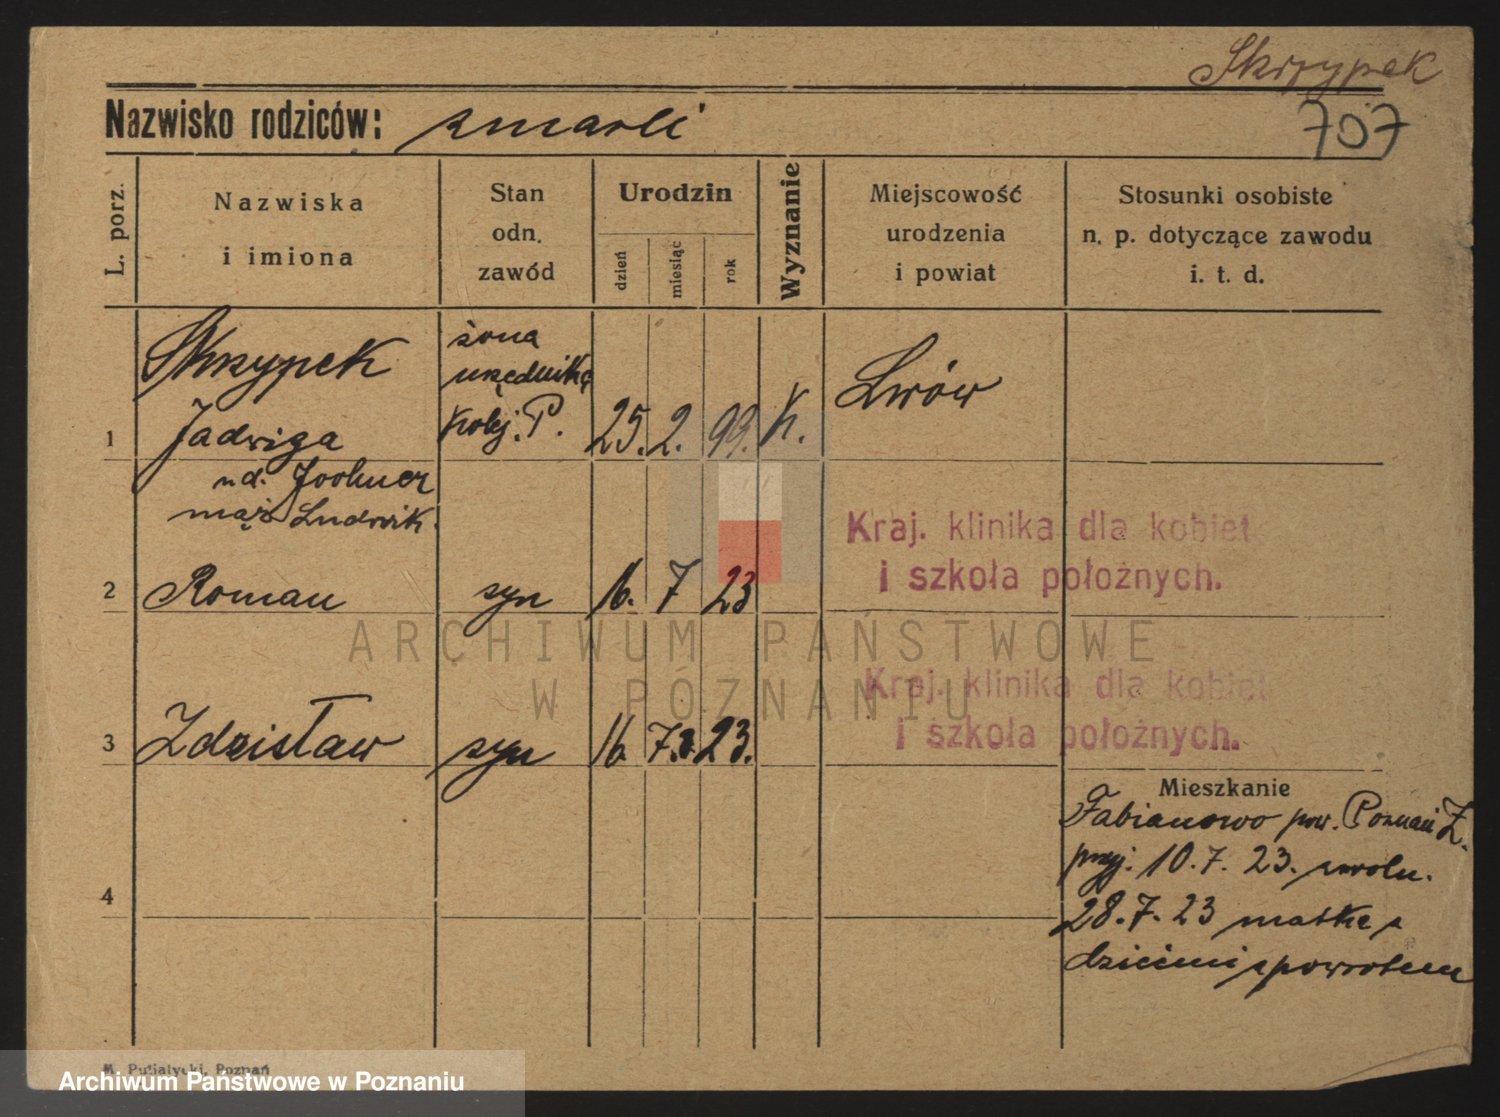 Skrzypek
707
Nazwisko rodziców: zmarli
L. porz.
Nazwiska
i imiona
Stan
odn.
zawód
Urodzin
dzień
miesiąc
rok
Wyznanie
Miejscowość
urodzenia
i powiat
Stosunki osobiste
n. p. dotyczące zawodu
i. t. d.
1
Skrzypek
Jadwiga
mąż Ludwik.
żona
urzędnika
Kolej. P.
25. 2. 99.
K.
Lwów
2
Roman
syn
16. 7 23
Kraj. klinika dla kobiet
i szkoła położnych.
3
Zdzisław
syn
16 7. 23.
Kraj. klinika dla kobiet
i szkoła położnych.
4
Mieszkanie
Fabianowo pow. Poznań Z.
przyj. 10.7. 23. zwoln.
28.7.23 matkę z
dziećmi z powrotem
M. Putiatycki, Poznań
ARCHIWUM PAŃSTWOWE
W POZNANIU
Archiwum Państwowe w Poznaniu